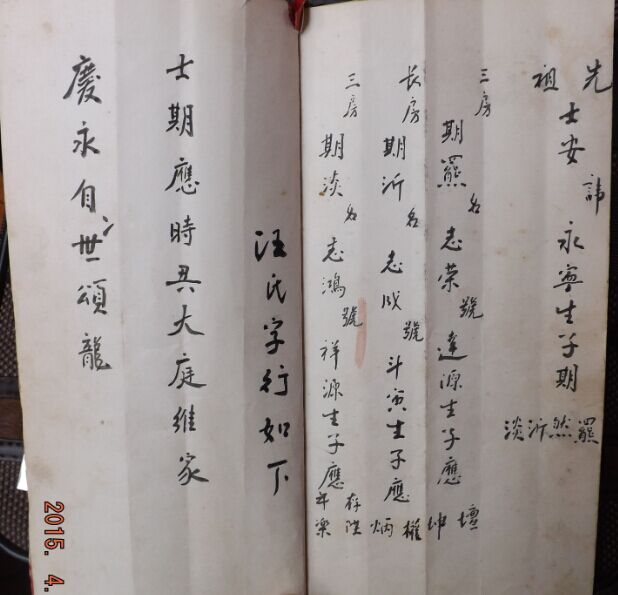 先祖
士安 諱 永寧生子期
羆 然 沂 淡
三房 期羆 名 志荣 號 達源生子應
壇 坤
长房 期沂 名 志成 號 斗寅生子應
權 炳
三房 期淡 名 志鴻 號 祥源生子應
存 陞
年 梁
汪氏字行如下
士期應時其大庭維家
慶永自世頌龍
2015. 4.